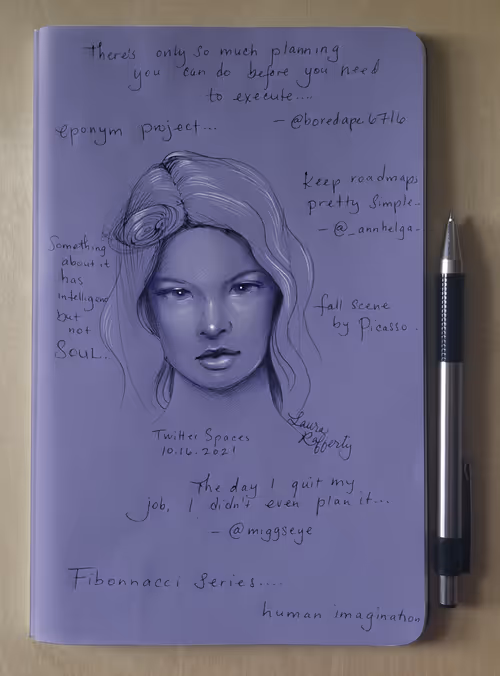 There's only so much planning
you can do before you need
to execute....
- @boredape6716
eponym project...
Keep roadmaps
pretty simple..
- @_annhelga-
Something
about it
has
intelligence
but
not
SOUL.
fall scene
by Picasso.
Laura
Rafferty
Twitter Spaces
10.16.2021
The day I quit my
job, I didn't even plan it...
- @miggseye
Fibonnacci Series....
human imagination